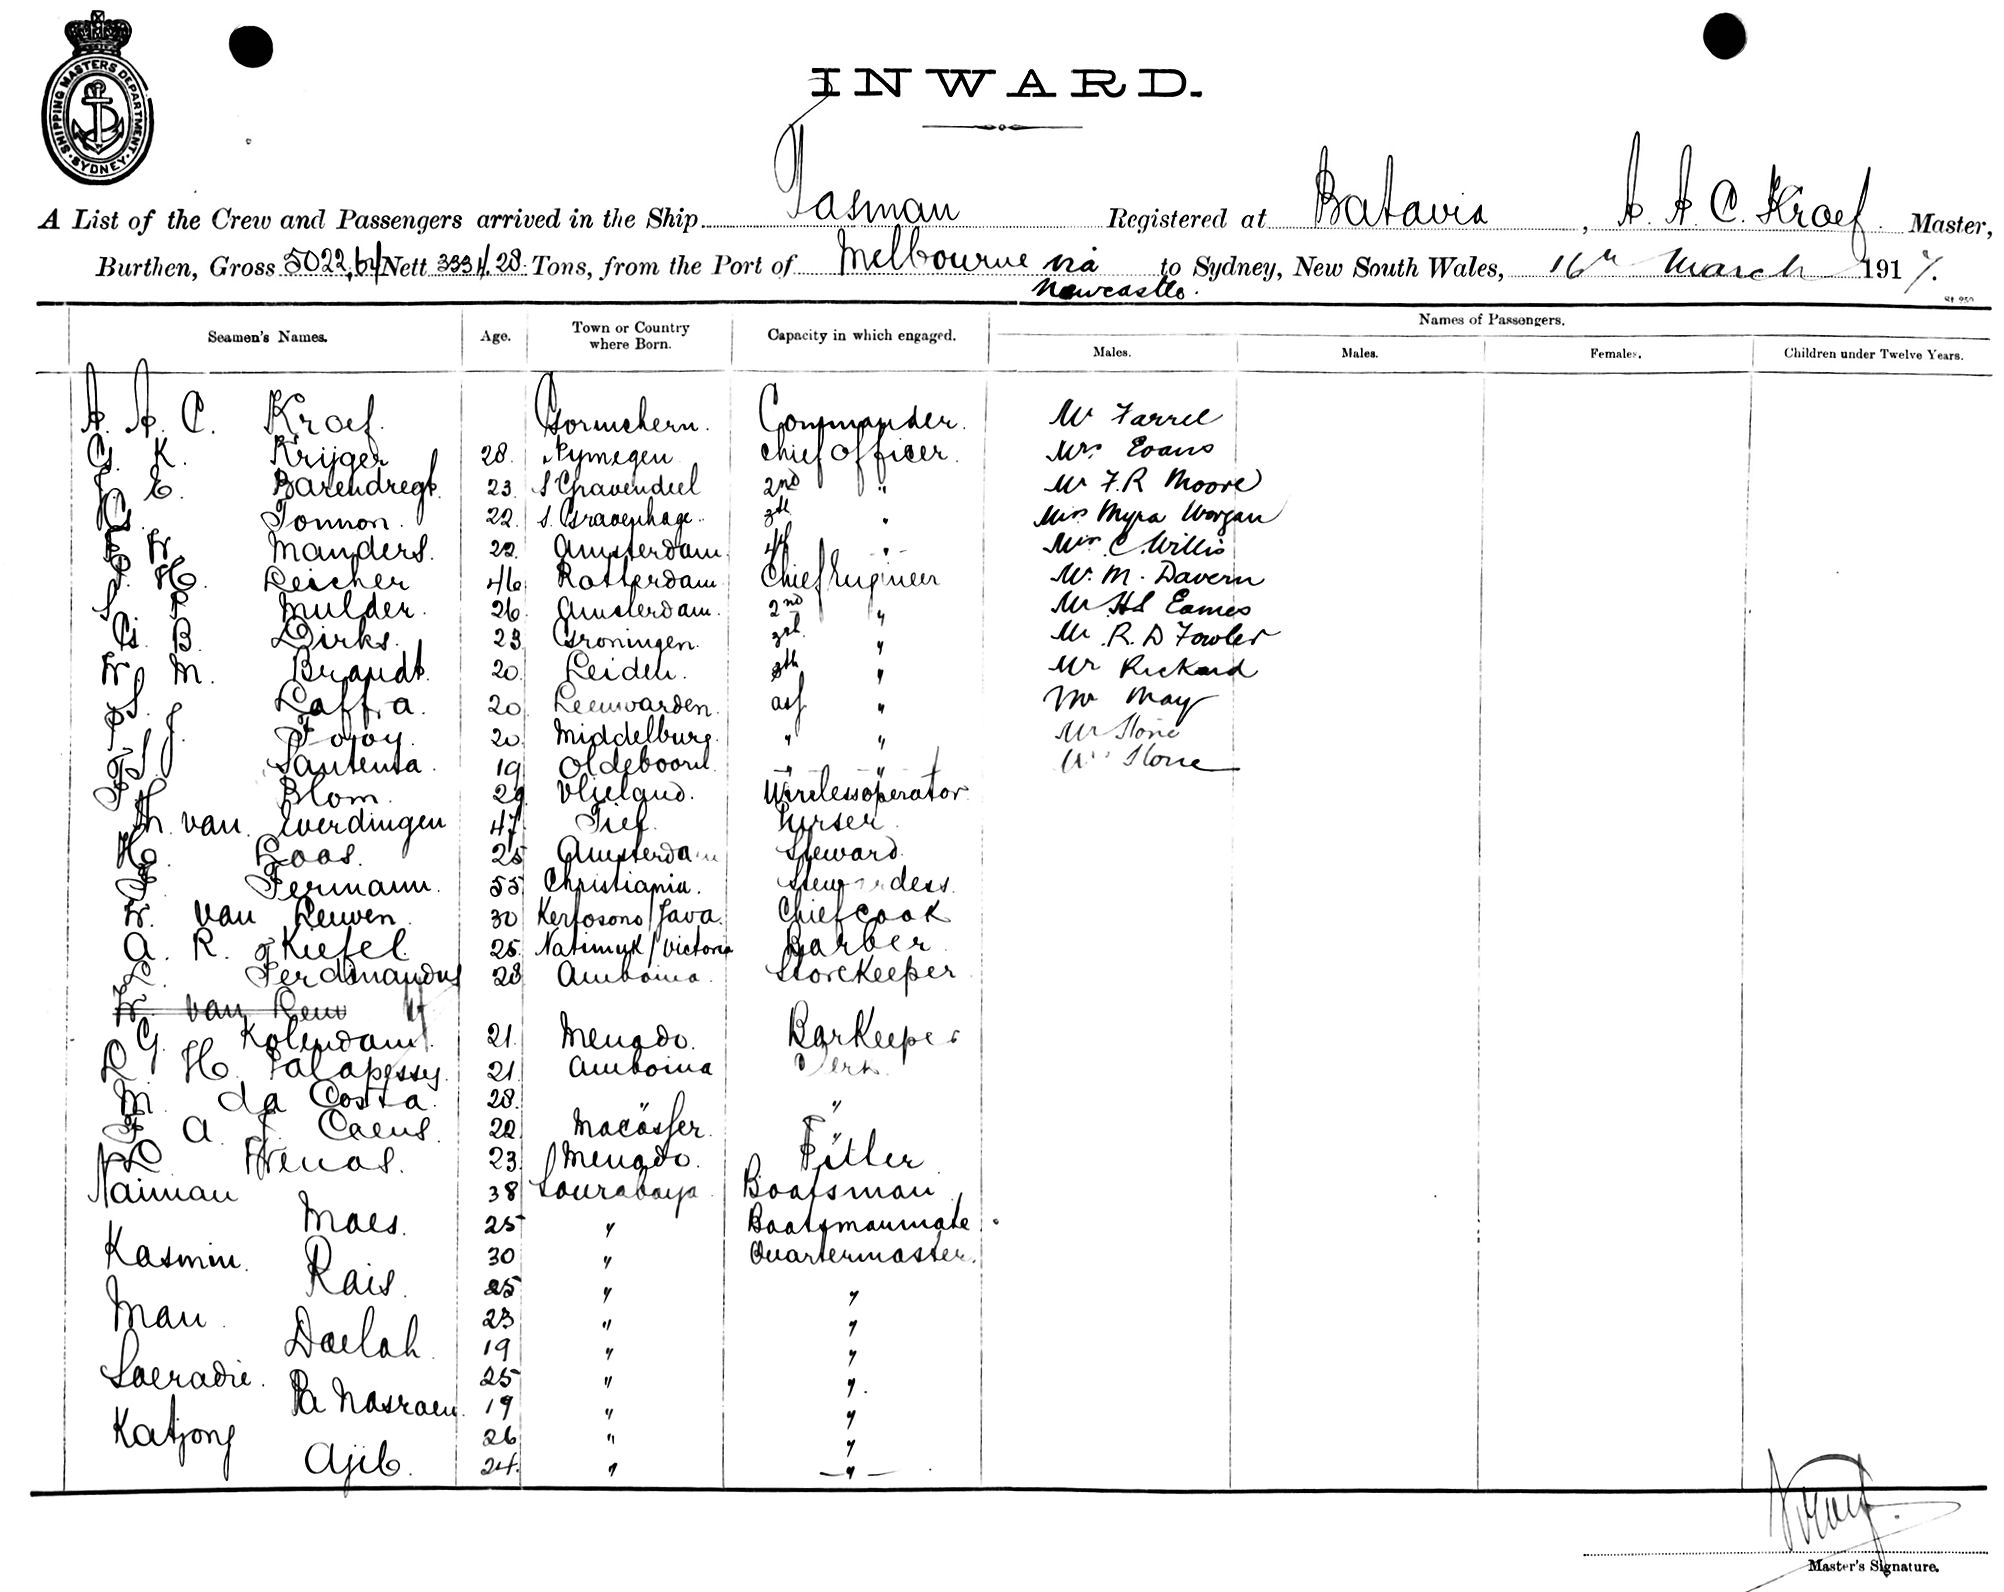 SHIPPING MASTERS DEPARTMENT. SYDNEY
INWARD.
A List of the Crew and Passengers arrived in the Ship Tasman Registered at Batavia, A. A. C. Kroef. Master,
Burthen, Gross 5022,64 Nett 3334,28. Tons, from the Port of Melbourne via Newcastle. to Sydney, New South Wales, 16th March 1917.
Seamen's Names. Age. Town or Country where Born. Capacity in which engaged. Names of Passengers.
Males. Males. Females. Children under Twelve Years.
A. A. C. Kroef. Gorinchem. Commander. Mr Farrel
G. K. Krijger 28. Nymegen chief officer. Mrs Evans
J. E. Barendregt. 23. 2nd " Mr F. R Moore
G. Tonnon. 22. s. Gravenhage. 3th " Miss Myra Worgan
Manders. 22. Amsterdam. 4th " C. Willis
P. H. Reicher 46. Rotterdam Chief Engineer Mr. M. Davern
S. P. Mulder. 26. Amsterdam. 2nd " Mr HS Eames
G. B. Dirks. 23. Groningen. 3th " Mr R. D Fowler
W. M. Brandt. 20. Leiden. " Mr Rickard
S. Laffra. 20. Leeuwarden. " Mr May
J. 20. Middelburg. " " Mr Stone
Santenta. 19 Oldeboorn. " " Stone
Blom. 29. Vlieland. Wirelessoperator
Th. van Everdingen 47. Tiel. Purser.
H. Roos. 25 Amsterdam Steward.
F. Fermann. 55. Christiania. Stewardess.
W. van Leuwen. 30 Kertosono/Java. Chiefcook
A. R. Kiefel. 25. Natimuk/Victoria Barber.
L. Ferdinandus 28 Amboina. Storekeeper
W. van Leuw
G. Kolendam 21. Menado. Barkeeper
R. H. Talapessy. 21. Amboina Clerk.
M. da Costa. 28. "
F. A. J. Caeus. 22. Macasser. "
L. Wenas. 23. Menado. Fitler
Naiman 38 Sourabaya. Boatsman
Maes. 25 " Boatsmanmate.
Kasmin. 30 " Quartermaster.
Rais. 25 " "
Man. 23 " "
Daelah. 19 " "
Saeradie. 25 " "
Pa Nasraen. 19 " "
Katjong 26 " "
Ajib. 24. " "
Kroef.
Master's Signature.